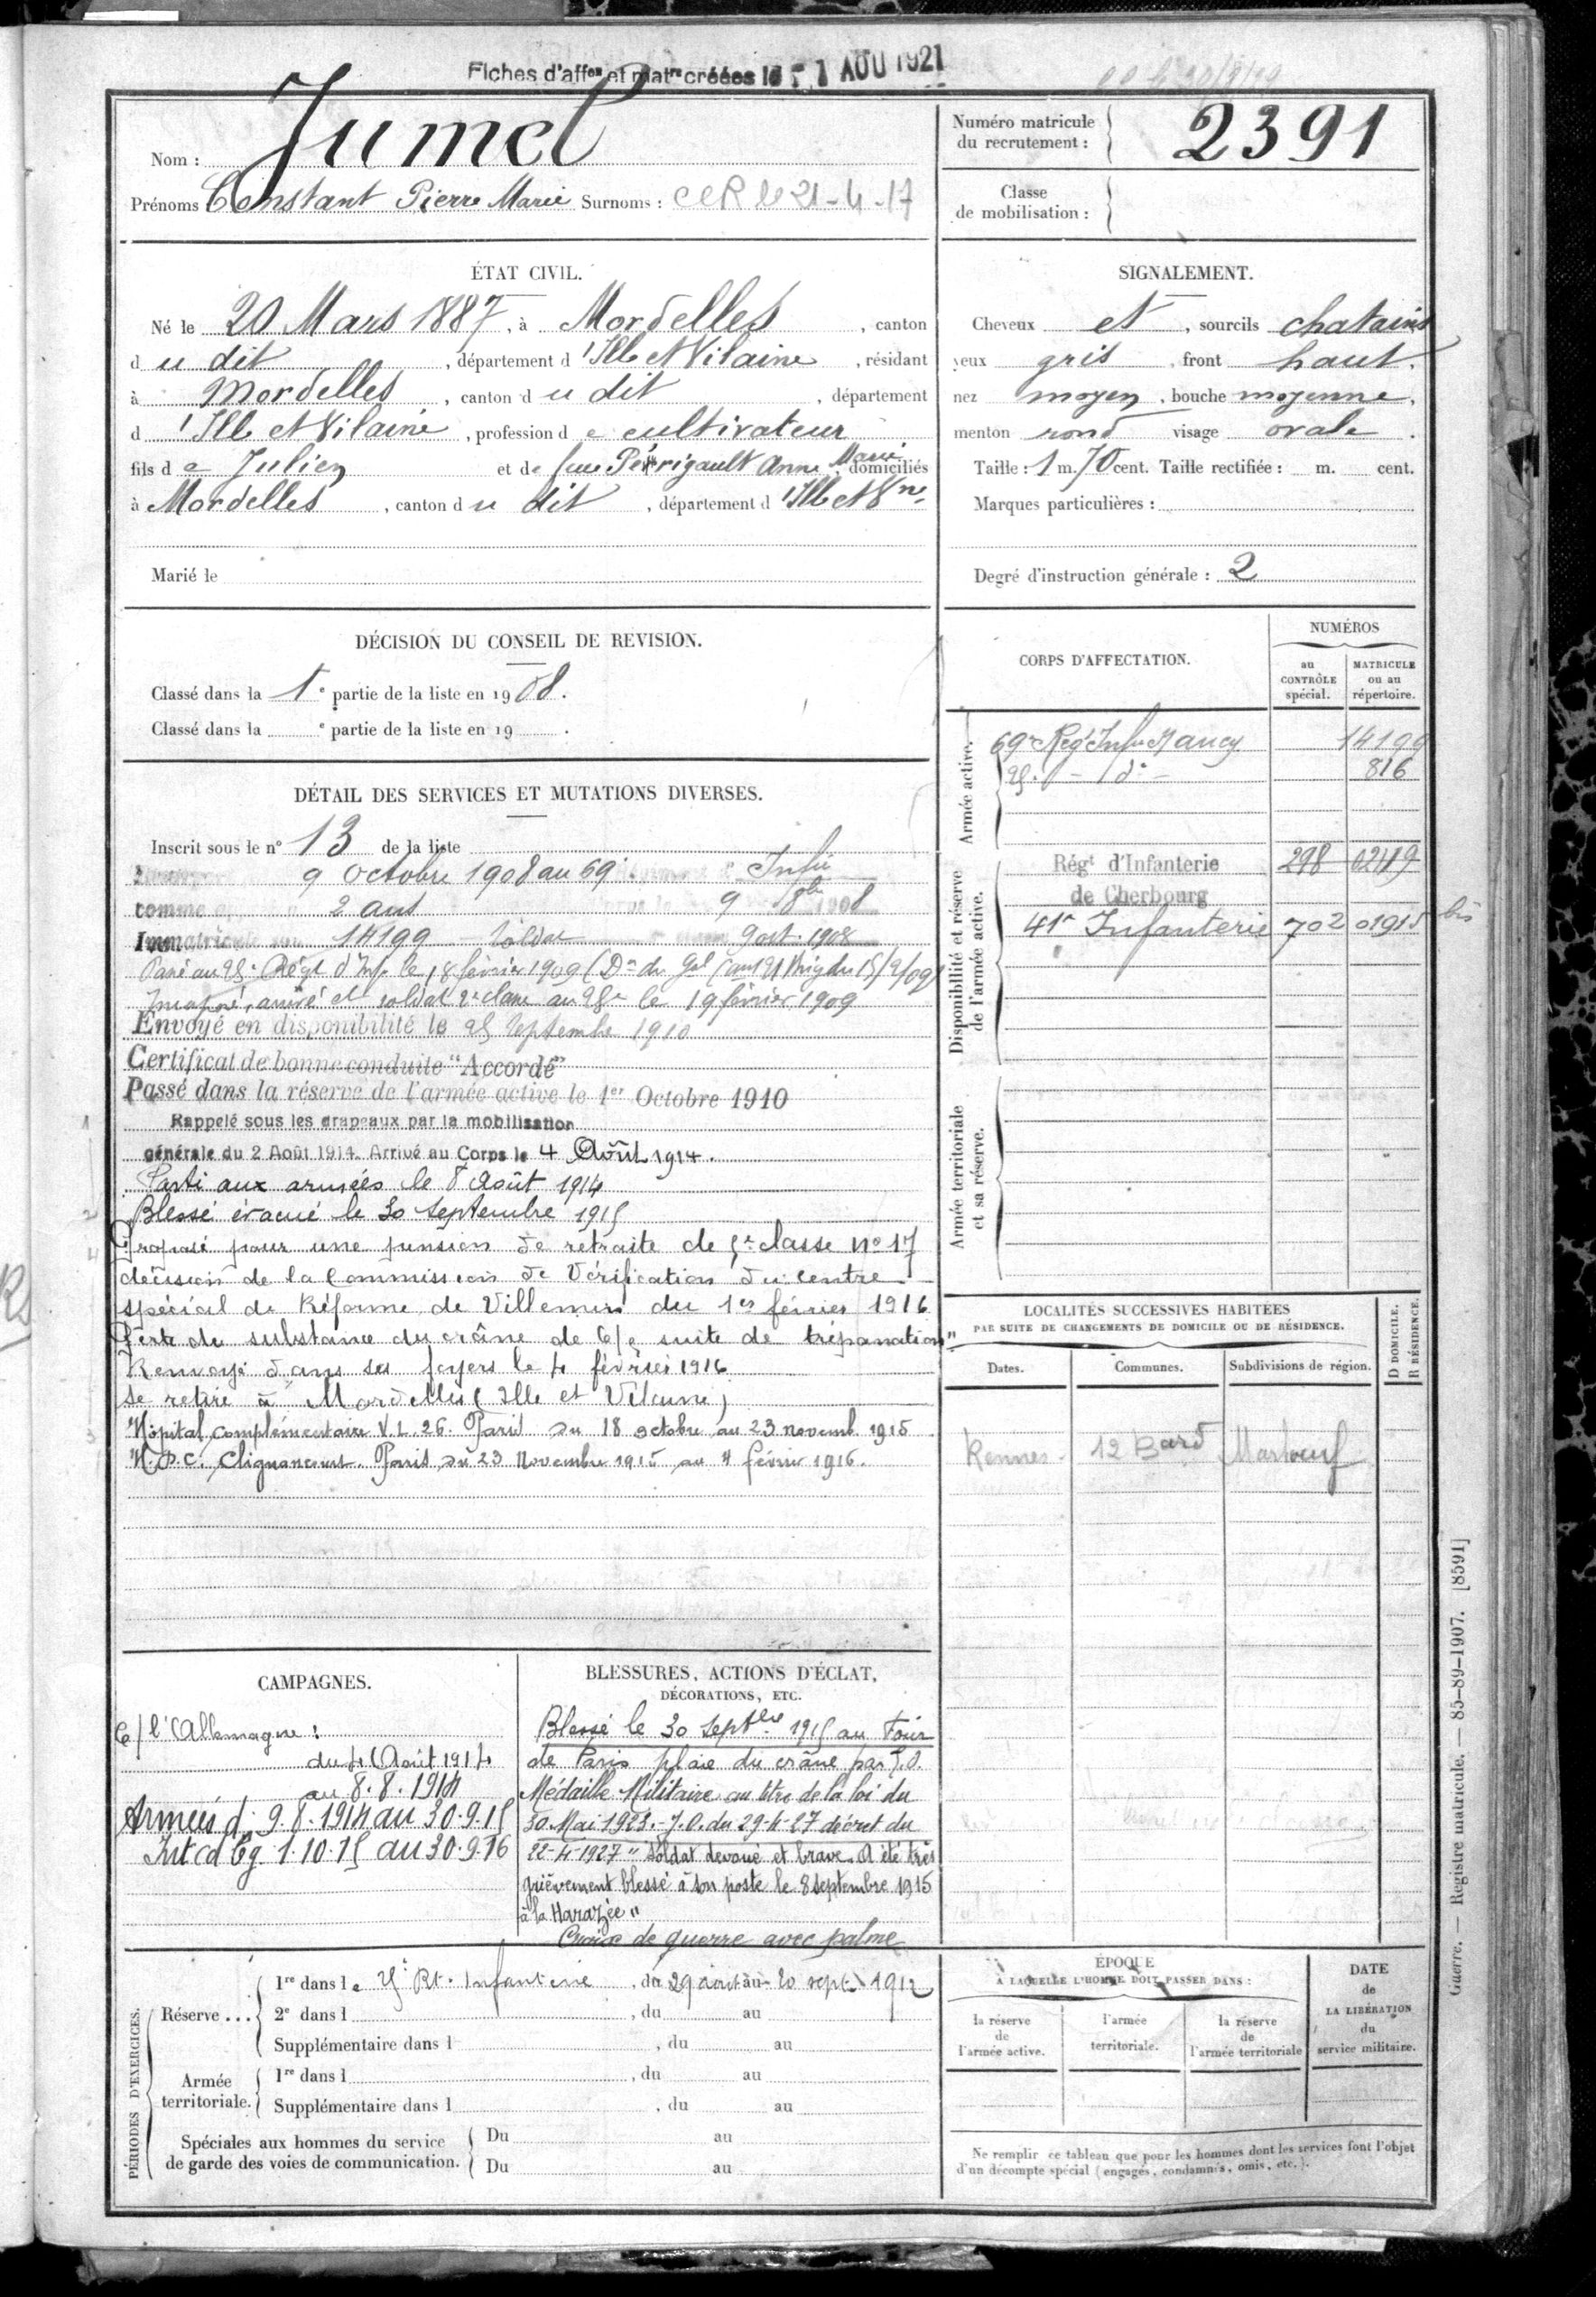 Fiches d'aff^on et mat^re créées le 1 AOU 1921
Nom : Jumel
Prénoms Constant Pierre Marie Surnoms : CCR le 21-4-17
Numéro matricule du recrutement : 2391
Classe de mobilisation :
ÉTAT CIVIL.
Né le 20 Mars 1887, à Mordelles, canton
du dit, département d'Ille et Vilaine, résidant
à Mordelles, canton du dit, département
d'Ille et Vilaine, profession de cultivateur
fils de Julien et de feue Perrigault Anne Marie, domiciliés
à Mordelles, canton du dit, département d'Ille et Vne
Marié le
SIGNALEMENT.
Cheveux et, sourcils chatains
yeux gris, front haut.
nez moyen, bouche moyenne,
menton rond visage ovale.
Taille : 1 m. 70 cent. Taille rectifiée : m. cent.
Marques particulières :
Degré d'instruction générale : 2
DÉCISION DU CONSEIL DE REVISION.
Classé dans la 1e partie de la liste en 1908.
Classé dans la e partie de la liste en 19 .
DÉTAIL DES SERVICES ET MUTATIONS DIVERSES.
Inscrit sous le n° 13 de la liste
9 Octobre 1908 au 69e Infie
comme 2 ans 9 8bre 1908
Immatriculé 14199 soldat 9 oct. 1908
Passé au 25e Régt d'Inf. le 18 février 1909
arrivé et soldat 2e classe au 25e le 19 février 1909
Envoyé en disponibilité le 25 Septembre 1910
Certificat de bonne conduite "Accordé"
Passé dans la réserve de l'armée active le 1er Octobre 1910
Rappelé sous les drapeaux par la mobilisation
générale du 2 Août 1914. Arrivé au Corps le 4 Août 1914.
Parti aux armées le 8 Août 1914
Blessé évacué le 30 Septembre 1915
Proposé pour une pension de retraite de 5e classe No 17
décision de la Commission de Vérification du centre
spécial de Réforme de Villemin du 1er février 1916
Perte de substance du crâne de 6/e suite de trépanation"
Renvoyé dans ses foyers le 4 février 1916
se retire à Mordelles (Ille et Vilaine)
Hôpital complémentaire V.L. 26. Paris du 18 octobre au 23 novemb. 1915
H.D.C. Clignancourt. Paris du 23 Novembre 1915 au 4 février 1916.
CORPS D'AFFECTATION.
NUMÉROS
au CONTRÔLE spécial.
MATRICULE ou au répertoire.
Armée active.
69e Reg Infie Nancy 14199
25e - d° - 816
Disponibilité et réserve de l'armée active.
Régt d'Infanterie de Cherbourg 298 02419
41e Infanterie 702 01915 bis
Armée territoriale et sa réserve.
LOCALITÉS SUCCESSIVES HABITÉES
PAR SUITE DE CHANGEMENTS DE DOMICILE OU DE RÉSIDENCE.
Dates. Communes. Subdivisions de région.
D DOMICILE. R RÉSIDENCE.
Rennes - 12 Bard Marboeuf
CAMPAGNES.
C/ l'Allemagne :
du 4 Août 1914
au 8.8.1914
Armées d. 9.8.1914 au 30.9.15
Int cd Cg 1.10.15 au 30.9.16
BLESSURES, ACTIONS D'ÉCLAT,
DÉCORATIONS, ETC.
Blessé le 30 Septbre 1915 au Four
de Paris plaie du crâne par E.O.
Médaille Militaire au titre de la loi du
30 Mai 1923. - J.O. du 29-4-27 décret du
22-4-1927 "Soldat dévoué et brave. A été très
grièvement blessé à son poste le 8 septembre 1915
à la Harazée"
Croix de guerre avec palme
PÉRIODES D'EXERCICES.
Réserve ...
1re dans le 25e Rt. Infanterie, du 29 août au 20 sept. 1912
2e dans l , du au
Supplémentaire dans l , du au
Armée territoriale.
1re dans l , du au
Supplémentaire dans l , du au
Spéciales aux hommes du service de garde des voies de communication.
Du au
Du au
ÉPOQUE
À LAQUELLE L'HOMME DOIT PASSER DANS :
la réserve de l'armée active.
l'armée territoriale.
la réserve de l'armée territoriale
DATE de LA LIBÉRATION du service militaire.
Ne remplir ce tableau que pour les hommes dont les services font l'objet
d'un décompte spécial (engagés, condamnés, omis, etc.).
Guerre. — Registre matricule. — 85-89-1907. [8591]